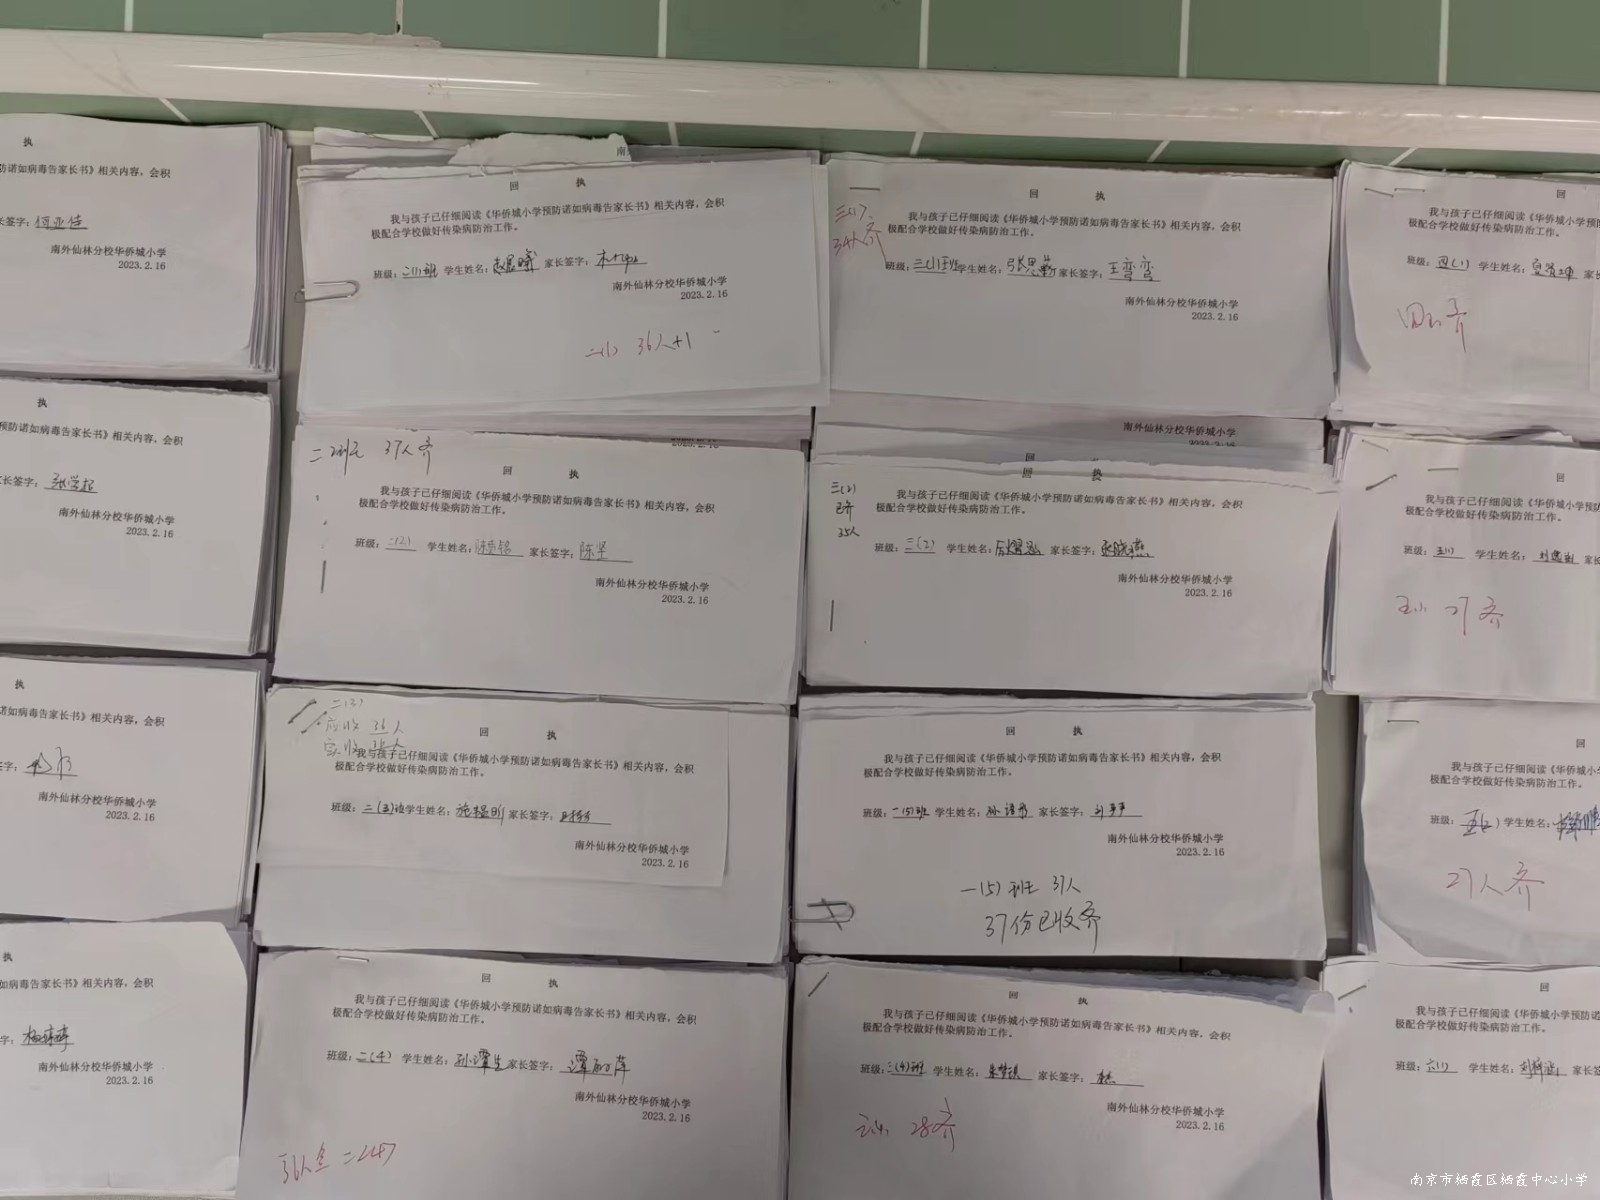 执
防诺如病毒告家长书》相关内容，会积
长签字：
南外仙林分校华侨城小学
2023.2.16
执
预防诺如病毒告家长书》相关内容，会积
家长签字：张学超
南外仙林分校华侨城小学
2023.2.16
执
诺如病毒告家长书》相关内容，会积
签字：
南外仙林分校华侨城小学
2023.2.16
执
如病毒告家长书》相关内容，会积
字：
南外仙林分校华侨城小学
2023.2.16
南
回 执
我与孩子已仔细阅读《华侨城小学预防诺如病毒告家长书》相关内容，会积
极配合学校做好传染病防治工作。
班级：二(1)班 学生姓名： 家长签字：
南外仙林分校华侨城小学
2023.2.16
二(1) 36人+1
二2班 37人 齐
回 执
我与孩子已仔细阅读《华侨城小学预防诺如病毒告家长书》相关内容，会积
极配合学校做好传染病防治工作。
班级：二(2) 学生姓名： 家长签字：陈军
南外仙林分校华侨城小学
2023.2.16
二(3)
应收 36人
实收
回 执
我与孩子已仔细阅读《华侨城小学预防诺如病毒告家长书》相关内容，会积
极配合学校做好传染病防治工作。
班级： 学生姓名： 家长签字：
南外仙林分校华侨城小学
2023.2.16
回 执
我与孩子已仔细阅读《华侨城小学预防诺如病毒告家长书》相关内容，会积
极配合学校做好传染病防治工作。
班级：二(4) 学生姓名： 家长签字：
南外仙林分校华侨城小学
2023.2.16
36人
三(1)
34人齐
回 执
我与孩子已仔细阅读《华侨城小学预防诺如病毒告家长书》相关内容，会积
极配合学校做好传染病防治工作。
班级：三(1)班 学生姓名：张思勤 家长签字：王弯弯
南外仙林分校华侨城小学
2023.2.16
南外仙林分校华侨城小学
2023.2.16
回
三(2)
已齐
35人
回 执
我与孩子已仔细阅读《华侨城小学预防诺如病毒告家长书》相关内容，会积
极配合学校做好传染病防治工作。
班级：三(2) 学生姓名： 家长签字：
南外仙林分校华侨城小学
2023.2.16
回 执
我与孩子已仔细阅读《华侨城小学预防诺如病毒告家长书》相关内容，会积
极配合学校做好传染病防治工作。
班级：一(5)班 学生姓名： 家长签字：
南外仙林分校华侨城小学
2023.2.16
一(5)班 37人
37份已收齐
回 执
我与孩子已仔细阅读《华侨城小学预防诺如病毒告家长书》相关内容，会积
极配合学校做好传染病防治工作。
班级：三(4)班 学生姓名： 家长签字：
南外仙林分校华侨城小学
2023.2.16
28齐
回
我与孩子已仔细阅读《华侨城小学预
极配合学校做好传染病防治工作。
班级：四(1) 学生姓名： 家长
齐
回
我与孩子已仔细阅读《华侨城小学预防
极配合学校做好传染病防治工作。
班级：五(1) 学生姓名： 家长
27齐
回
我与孩子已仔细阅读《华侨城小学
极配合学校做好传染病防治工作。
班级： 学生姓名：
27人齐
回
我与孩子已仔细阅读《华侨城小学预
极配合学校做好传染病防治工作。
班级：六(1) 学生姓名： 家长
南京市栖霞区栖霞中心小学